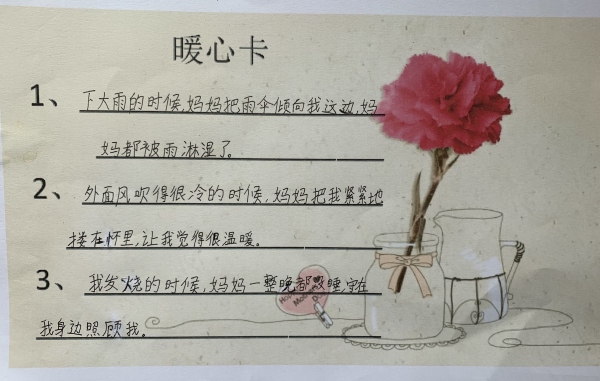 暖心卡
1、下大雨的时候,妈妈把雨伞倾向我这边,妈
妈都被雨淋湿了。
2、外面风吹得很冷的时候,妈妈把我紧紧地
搂在怀里,让我觉得很温暖。
3、我发烧的时候,妈妈一整晚都没睡,守在
我身边照顾我。